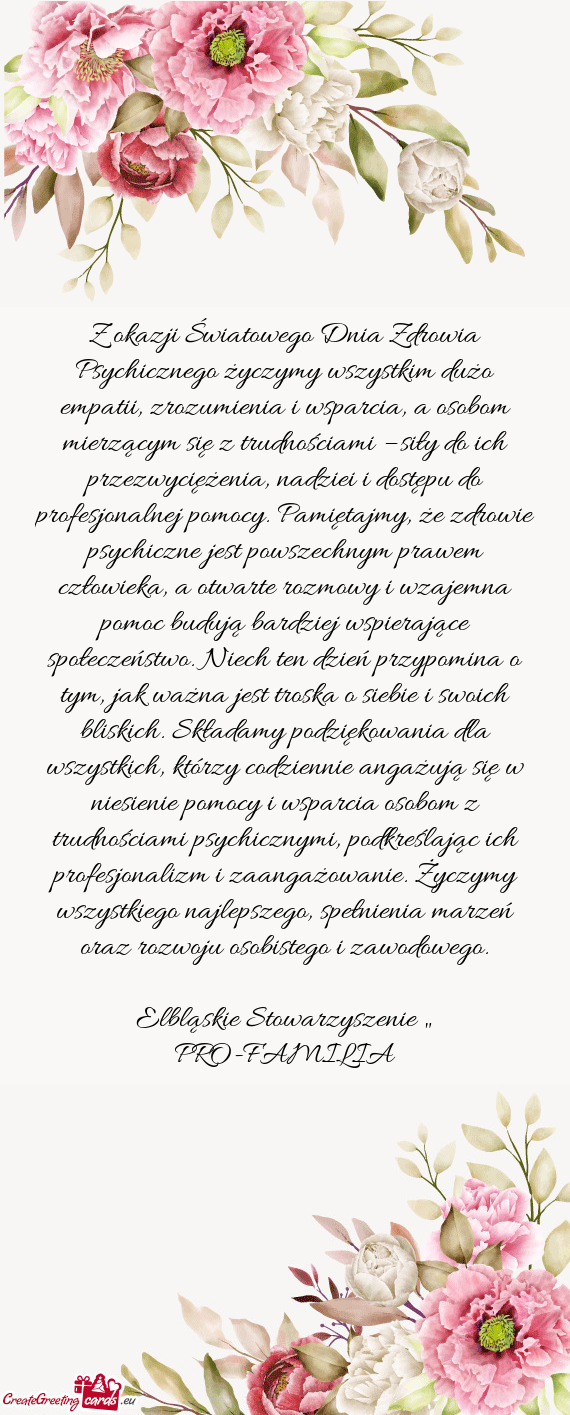 Z okazji Światowego Dnia Zdrowia
Psychicznego życzymy wszystkim dużo
empatii, zrozumienia i wsparcia, a osobom
mierzącym się z trudnościami – siły do ich
przezwyciężenia, nadziei i dostępu do
profesjonalnej pomocy. Pamiętajmy, że zdrowie
psychiczne jest powszechnym prawem
człowieka, a otwarte rozmowy i wzajemna
pomoc budują bardziej wspierające
społeczeństwo. Niech ten dzień przypomina o
tym, jak ważna jest troska o siebie i swoich
bliskich. Składamy podziękowania dla
wszystkich, którzy codziennie angażują się w
niesienie pomocy i wsparcia osobom z
trudnościami psychicznymi, podkreślając ich
profesjonalizm i zaangażowanie. Życzymy
wszystkiego najlepszego, spełnienia marzeń
oraz rozwoju osobistego i zawodowego.
Elbląskie Stowarzyszenie „
PRO-FAMILIA
CreateGreeting cards .eu